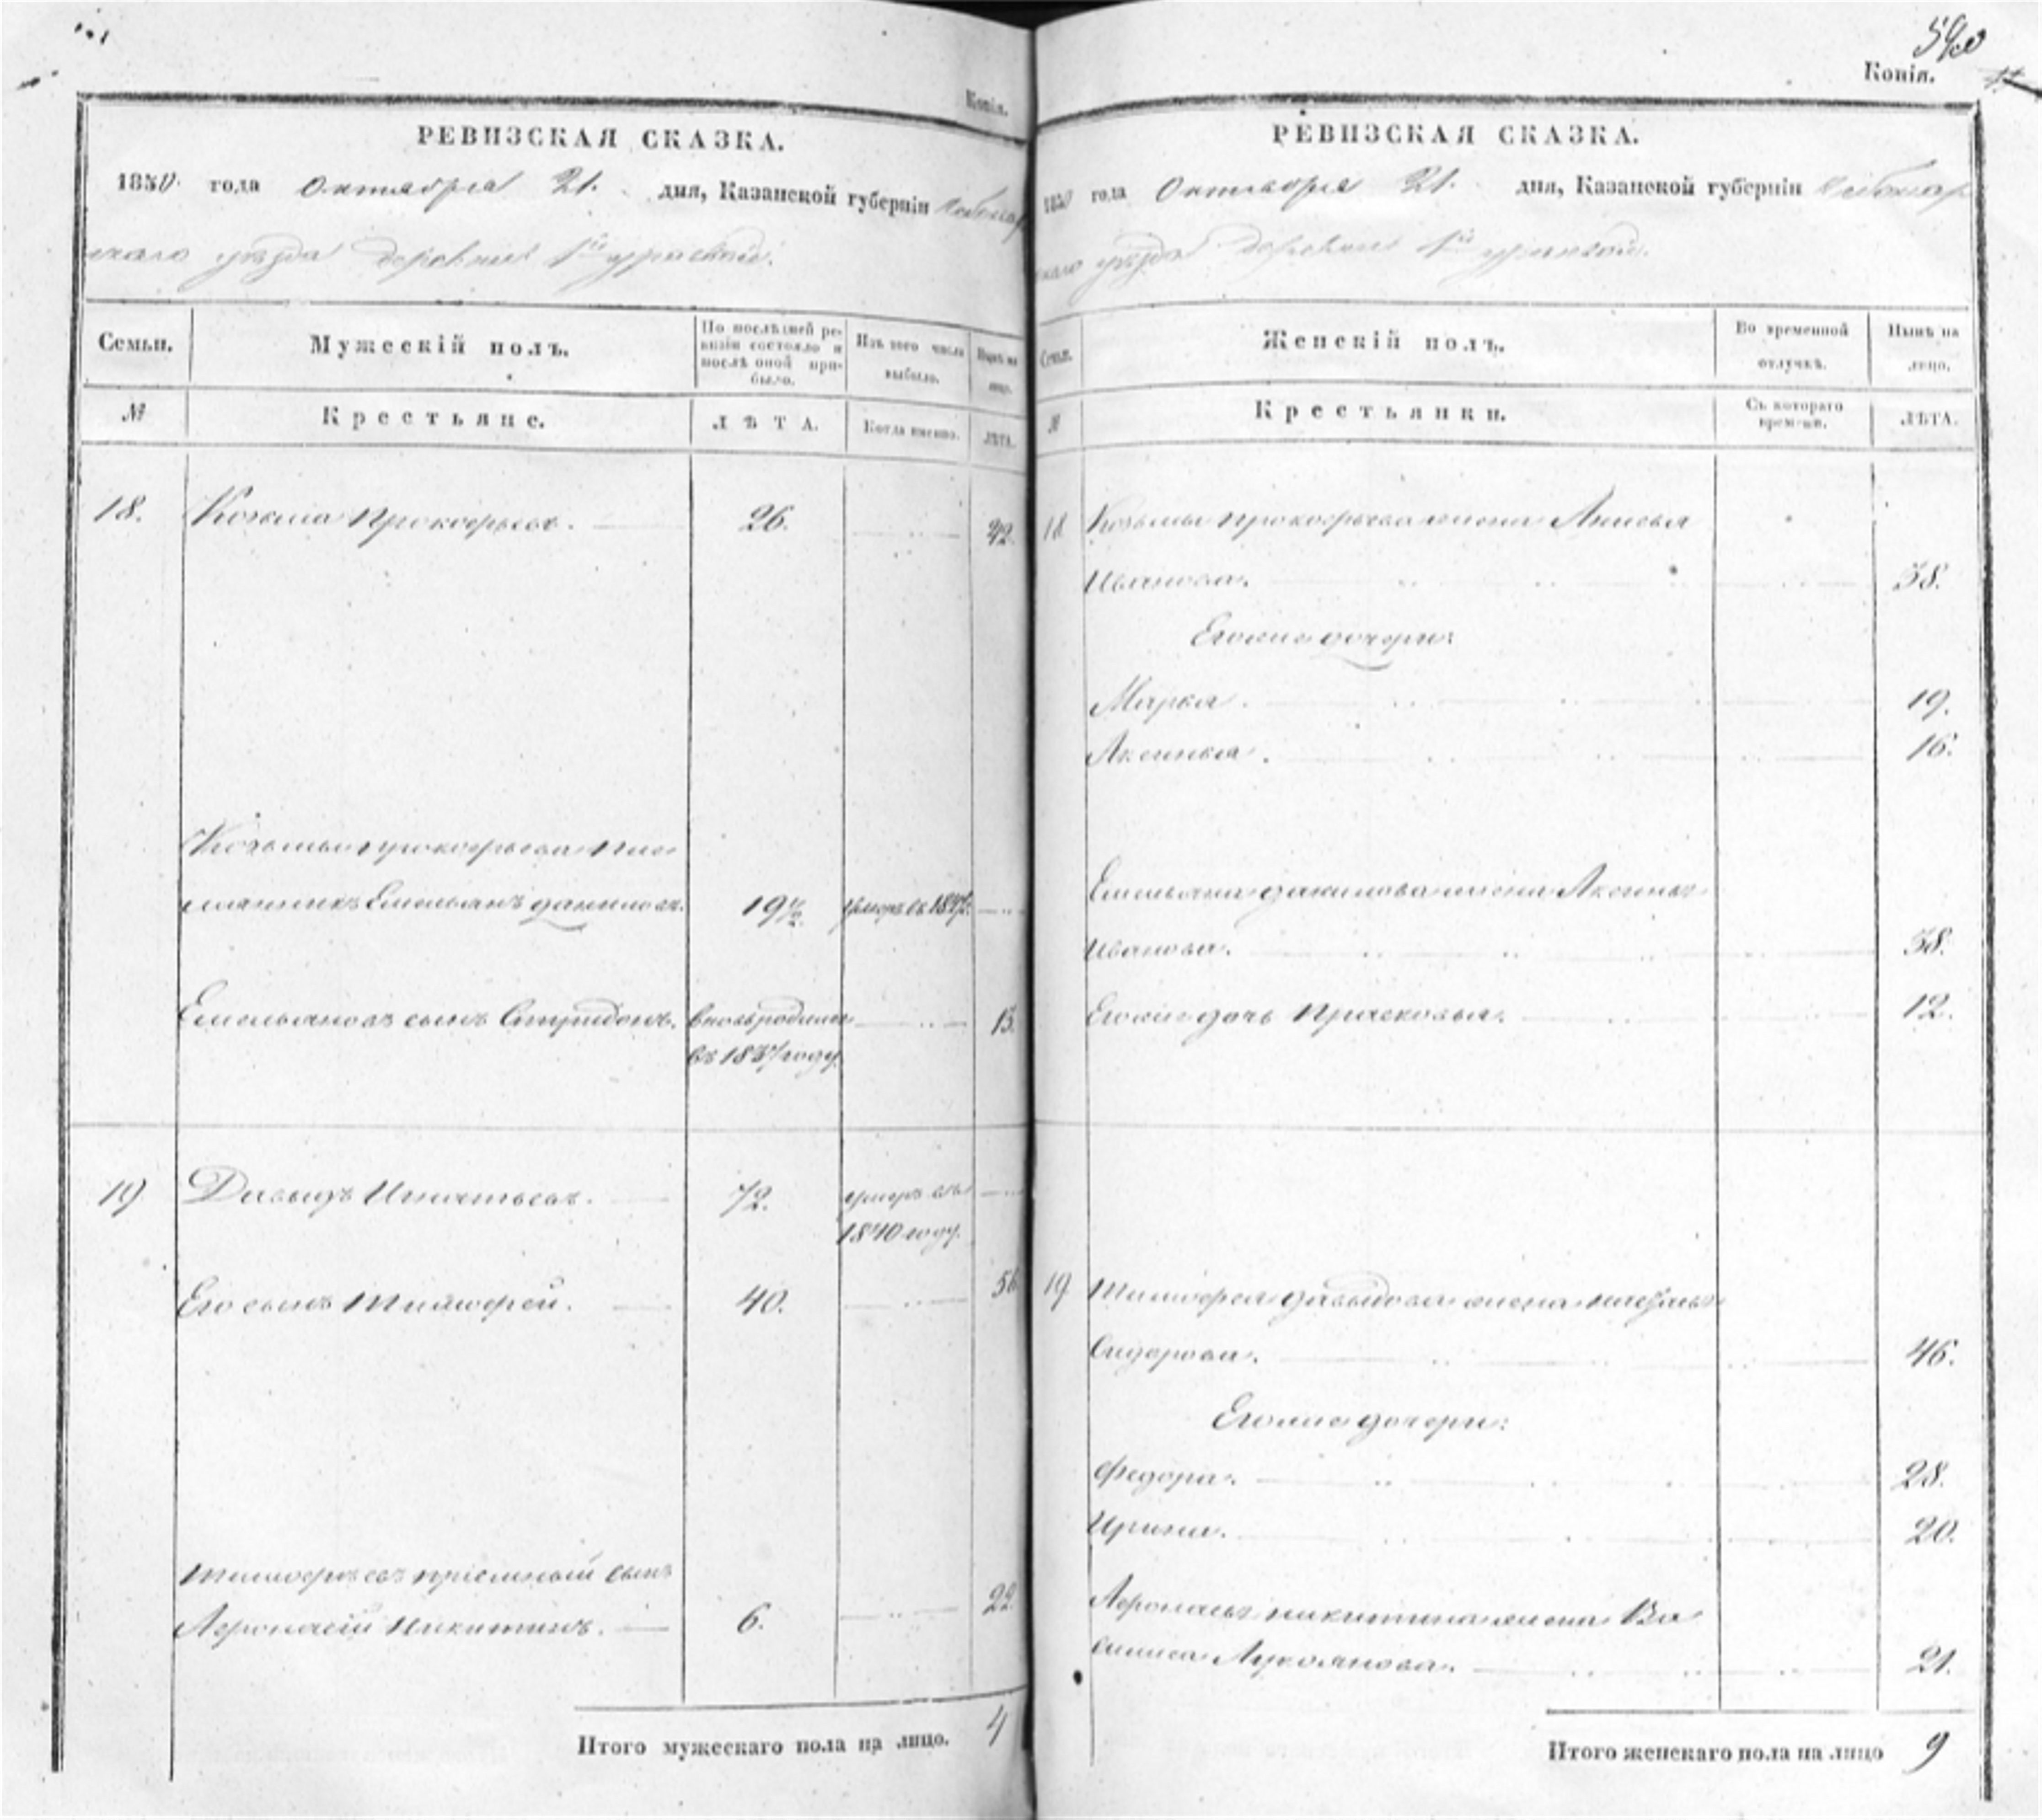 540
Копія.
Копія.
РЕВИЗСКАЯ СКАЗКА.
1850 года Октября 21. дня, Казанской губерніи Чебокар
скаго уѣзда деревни 1й
Семьи.
Мужескій полъ.
По послѣдней ре-
визіи состояло и
послѣ оной при-
было.
Изъ того числа
выбыло.
Нынѣ на
лицо.
№
Крестьяне.
ЛѢТА.
Когда именно.
ЛѢТА.
18. Козьма Прокофьевъ. 26. 42.
Козьмы Прокофьева пле
мянникъ Емельянъ Даниловъ. 19½ умеръ въ
Емельяновъ сынъ Спиридонъ. вновь родился 13.
въ 1837 году.
19 Давыдъ Игнатьевъ. 72. умеръ въ
1840 году.
Его сынъ Тимофей. 40. 56
Тимофеевъ пріемный сынъ
Афонасій Никитинъ. 6. 22.
Итого мужескаго пола на лицо. 4
РЕВИЗСКАЯ СКАЗКА.
1850 года Октября 21. дня, Казанской губерніи Чебокар
скаго уѣзда деревни 1й
Семьи.
Женскій полъ.
Во временной
отлучкѣ.
Нынѣ на
лицо.
№
Крестьянки.
Съ котораго
времени.
ЛѢТА.
18 Козьмы Прокофьева жена Анисья
Иванова. 38.
Его же дочери:
Марка. 19.
Аксинья. 16.
Емельяна Данилова жена Аксинья
Иванова. 38.
Его же дочь Прасковья. 12.
19 Тимофея Давыдова жена
Сидорова. 46.
Его же дочери:
Федора. 28.
Ирина. 20.
Афонасья Никитина жена Ва
силиса Лукоянова. 21.
Итого женскаго пола на лицо 9